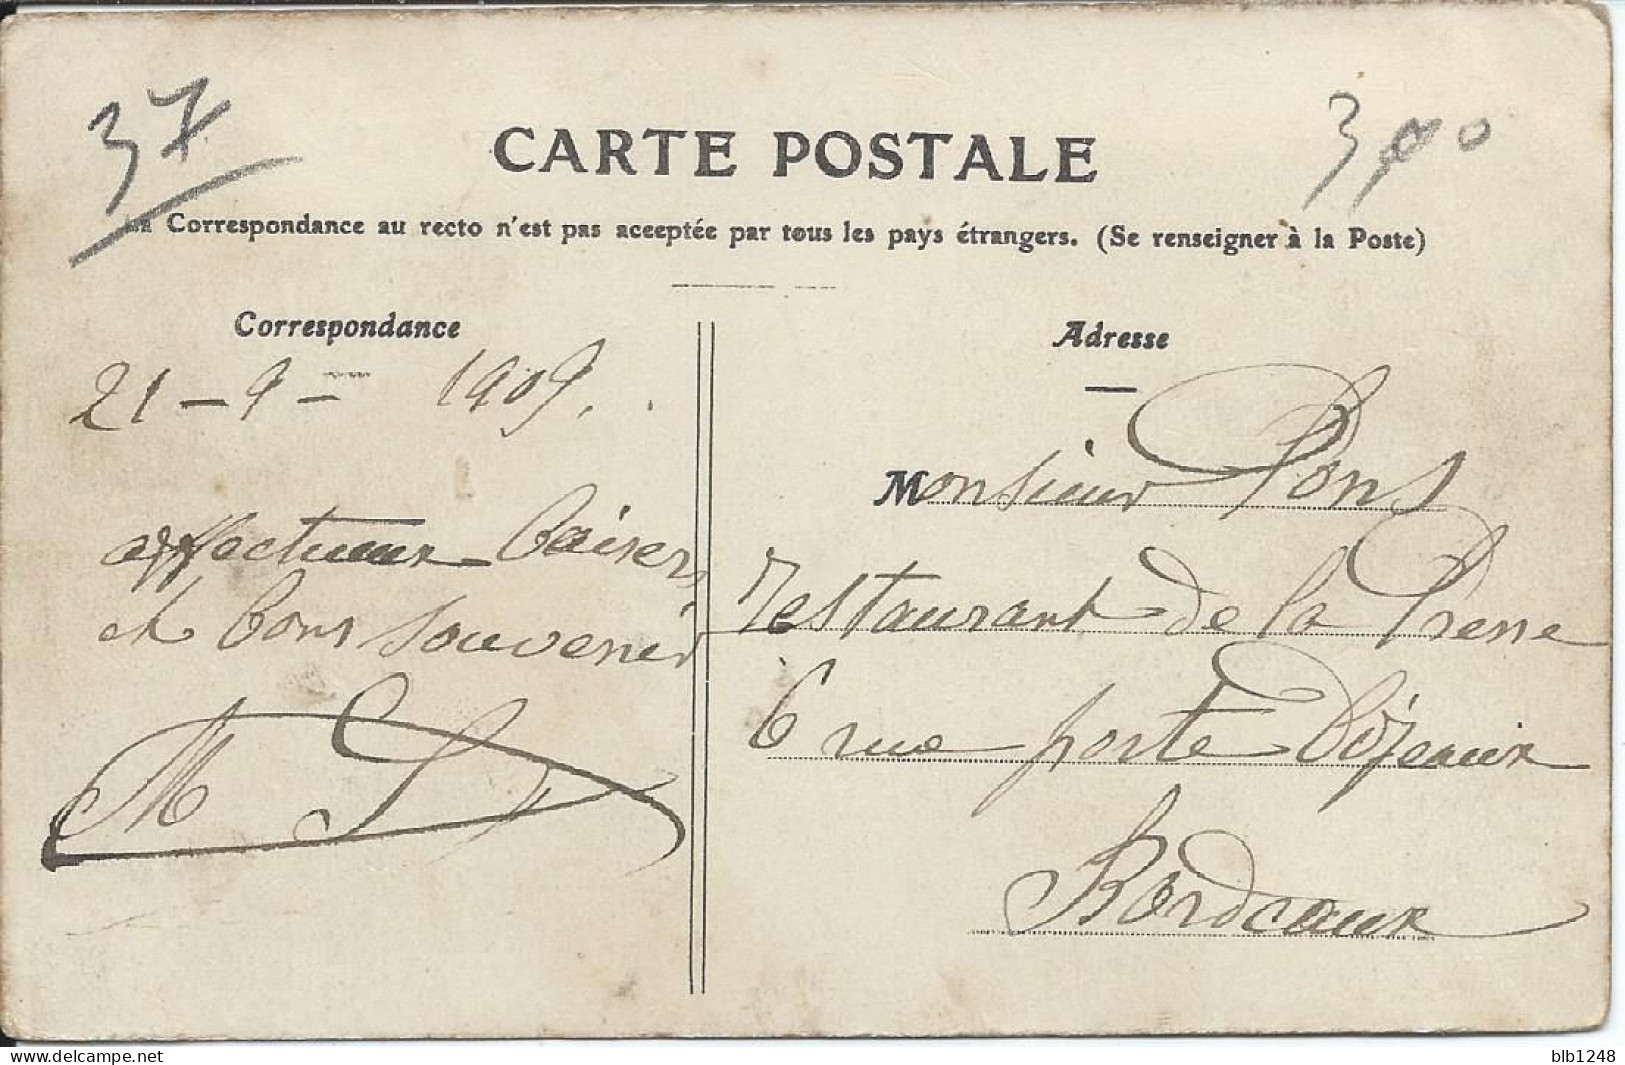 37
3,00
CARTE POSTALE
La Correspondance au recto n'est pas acceptée par tous les pays étrangers. (Se renseigner à la Poste)
Correspondance
21 - 9 - 1909.
affectueux baisers
et bons souvenir
M S
Adresse
Monsieur Pons
restaurant de la Presse
6 rue porte Dijeaux
Bordeaux
delcampe.net
blb1248